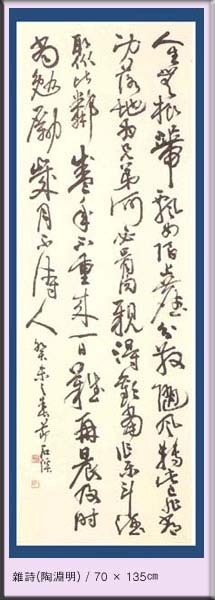 人生無根蔕飄如陌上塵分散隨風轉此已非常
身落地爲兄弟何必骨肉親得歡當作樂斗酒
聚比鄰盛年不重來一日難再晨及時
當勉勵歲月不待人 癸未之春
雜詩(陶淵明) / 70 × 135㎝